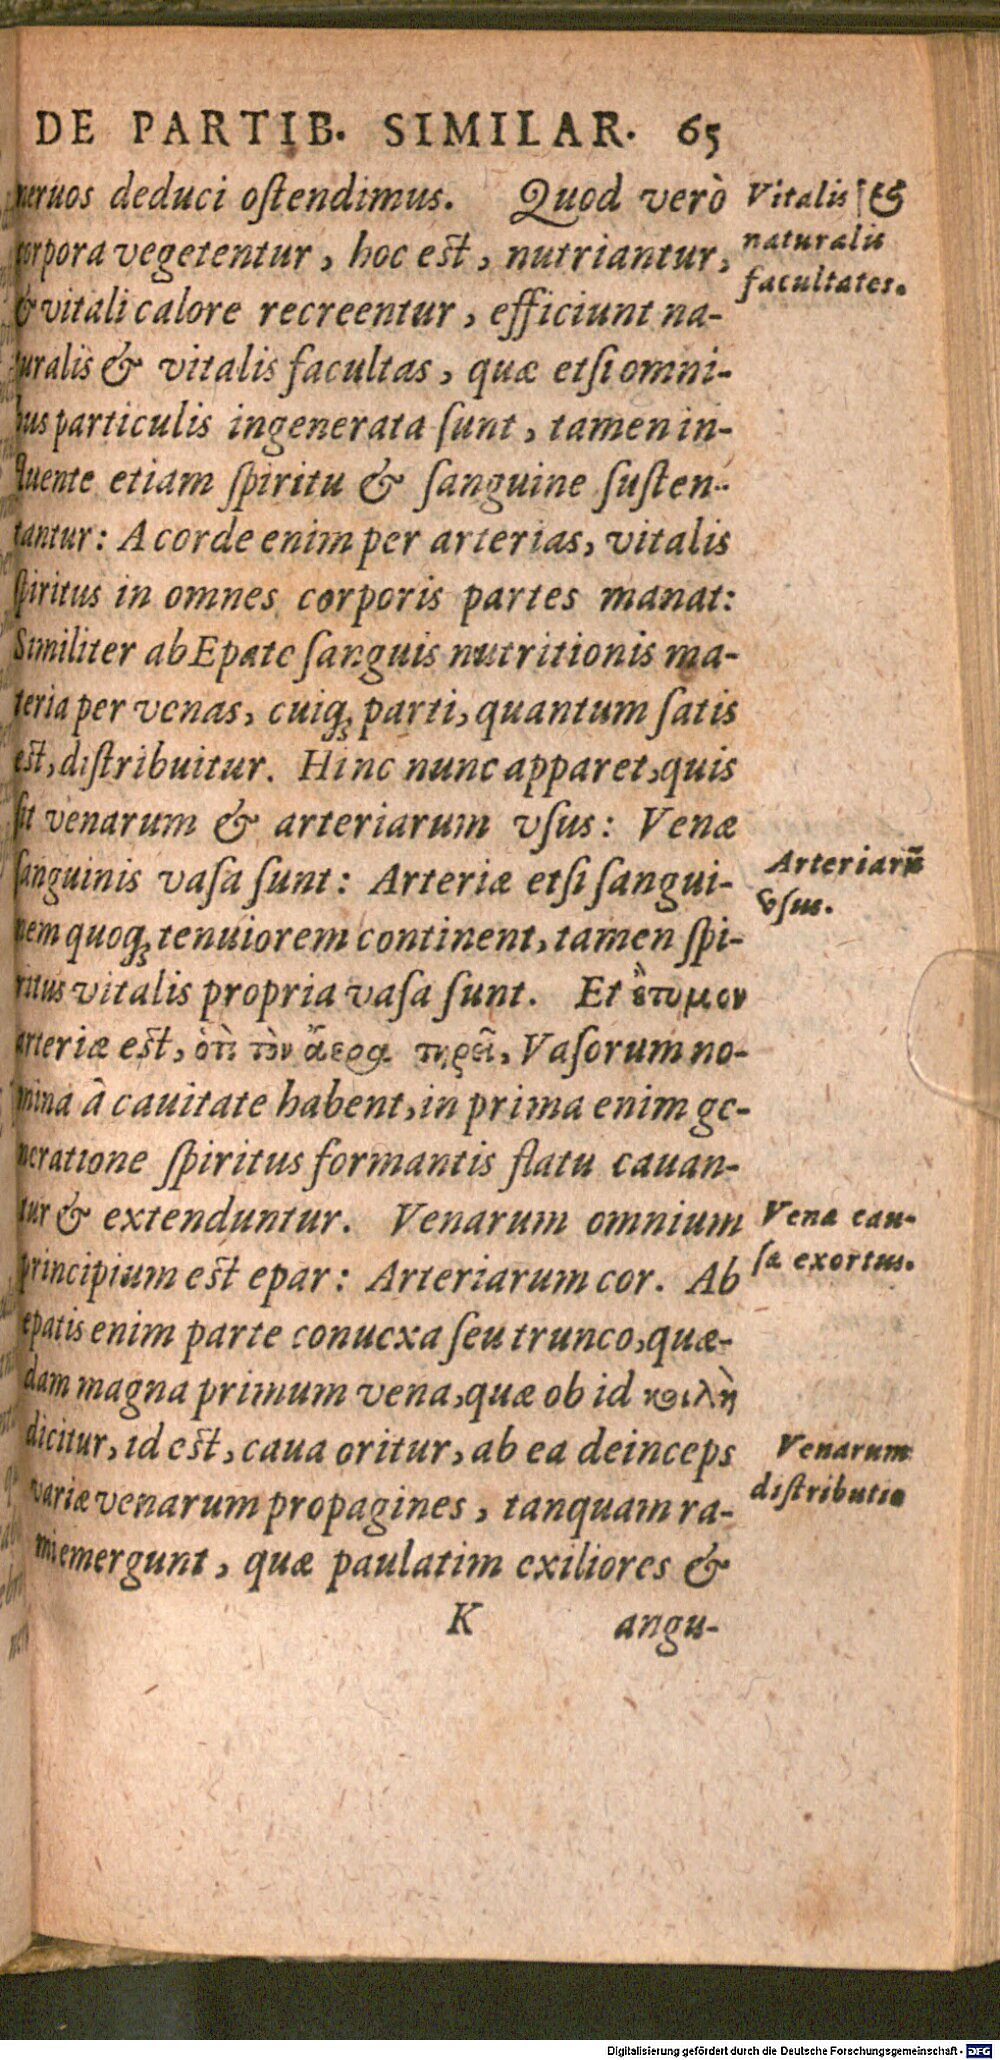 DE PARTIB. SIMILAR. 65
neruos deduci ostendimus. Quod verò
corpora vegetentur, hoc est, nutriantur,
& vitali calore recreentur, efficiunt na-
turalis & vitalis facultas, quæ etsi omni-
bus particulis ingenerata sunt, tamen in-
fluente etiam spiritu & sanguine susten-
tantur: A corde enim per arterias, vitalis
spiritus in omnes corporis partes manat:
Similiter ab Epate sanguis nutritionis ma-
teria per venas, cuiq; parti, quantum satis
est, distribuitur. Hinc nunc apparet, quis
sit venarum & arteriarum vsus: Venæ
sanguinis vasa sunt: Arteriæ etsi sangui-
nem quoq; tenuiorem continent, tamen spi-
ritus vitalis propria vasa sunt. Et ἔτυμον
arteriæ est, ὅτι τὸν ἄερα τηρεῖ, Vasorum no-
mina à cauitate habent, in prima enim ge-
neratione spiritus formantis flatu cauan-
tur & extenduntur. Venarum omnium
principium est epar: Arteriarum cor. Ab
epatis enim parte conuexa seu trunco, quæ-
dam magna primum vena, quæ ob id κοιλὴ
dicitur, id est, caua oritur, ab ea deinceps
variæ venarum propagines, tanquam ra-
mi emergunt, quæ paulatim exiliores &
K angu-
Vitalis &
naturalis
facultates.
Arteriarũ
vsus.
Vena cau-
sa exortus.
Venarum
distributio
Digitalisierung gefördert durch die Deutsche Forschungsgemeinschaft - DFG